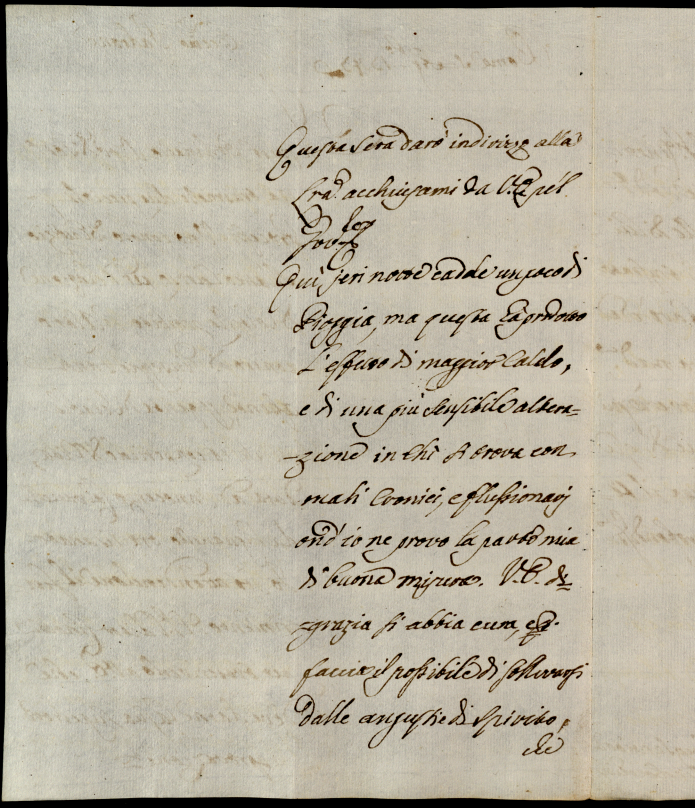 Questa sera darò indirizzo alla
Lra. acchiusami da V.E. pél
Qui jeri notte cadde un poco di
Pioggia, ma questa hà prodotto
L'effetto di maggior Caldo,
e di una più sensibile altera=
=zione in chi si trova con
mali Cronici, e flussionarj
ond'io ne provo la parte mia
di buona misura. V.E. di
grazia si abbia cura, e
faccia il possibile di sollevarsi
dalle angustie di spirito,
che